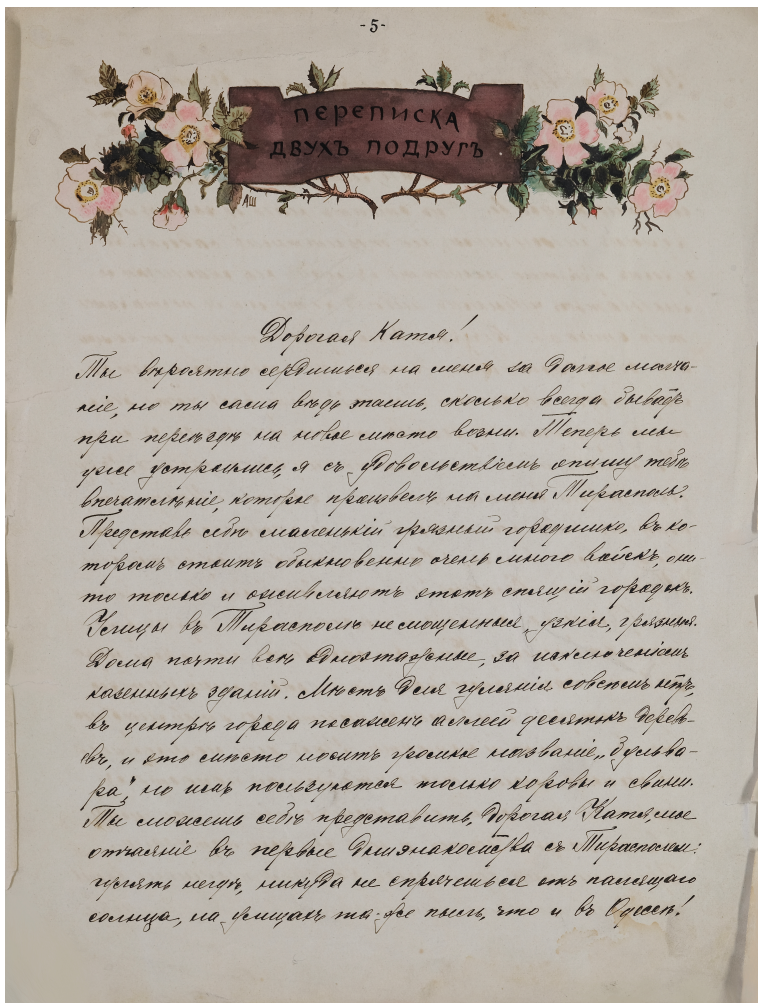 -5-
ПЕРЕПИСКА
ДВУХЪ ПОДРУГЪ
АШ
Дорогая Катя!
Ты вѣроятно сердишься на меня за долгое молча-
ніе, но ты сама вѣдь знаешь, сколько всегда бываетъ
при переѣздѣ на новое мѣсто возни. Теперь мы
уже устроились, я съ удовольствіемъ опишу тебѣ
впечатлѣніе, которое произвелъ на меня Тирасполь.
Представь себѣ маленькій грязный городишко, въ ко-
торомъ стоитъ обыкновенно очень много войскъ, они-
то только и оживляютъ этотъ спящій городокъ.
Улицы въ Тирасполѣ не мощенныя, узкія, грязныя.
Дома почти всѣ одноэтажные, за исключеніемъ
казенныхъ зданій. Мѣстъ для гулянія совсѣмъ нѣтъ,
въ центрѣ города посаженъ аллеей десятокъ деревь-
евъ, и это мѣсто носитъ громкое названіе „бульва-
ра", но имъ пользуются только коровы и свиньи.
Ты можешь себѣ представить, дорогая Катя, мое
отчаяніе въ первые дни знакомства съ Тирасполемъ:
гулять негдѣ, никуда не спрячешься отъ палящаго
солнца, на улицахъ та-же пыль, что и въ Одессѣ!